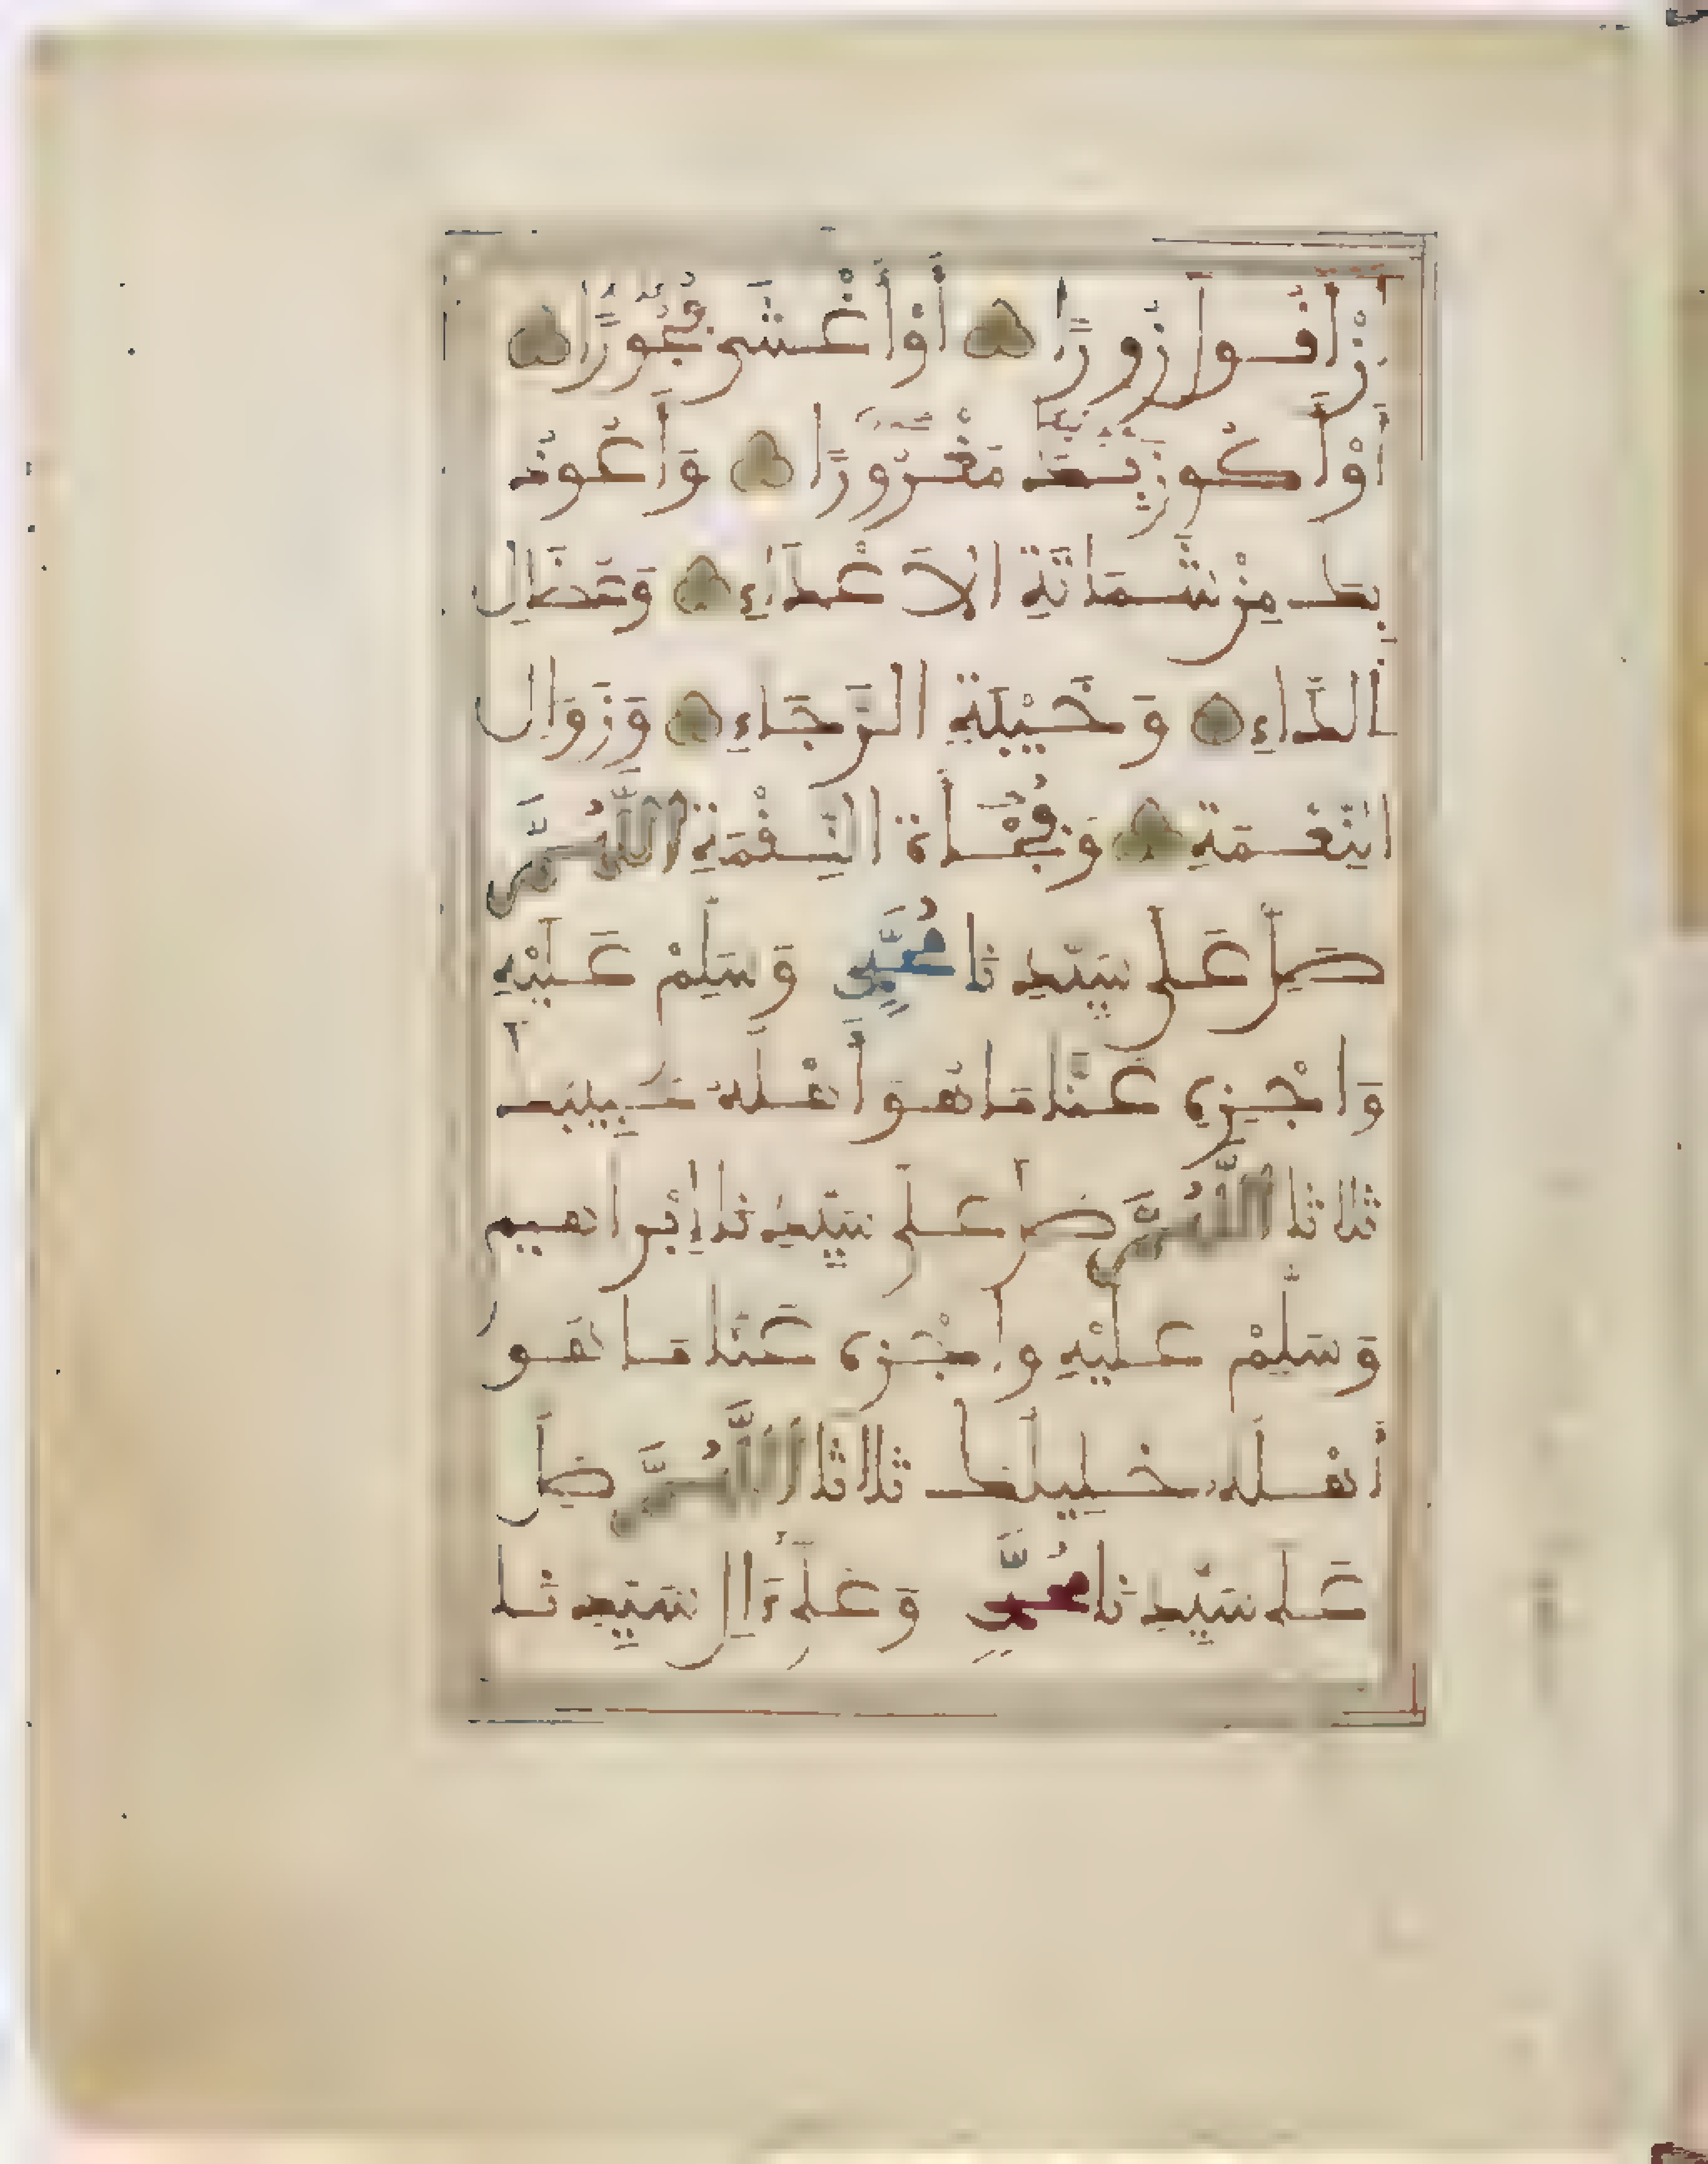 أَنْ أَقُولَ زُورًا أَوْ أَغْشَى فُجُورًا
أَوْ أَكُونَ بِكَ مَغْرُورًا وَأَعُوذُ
بِكَ مِنْ شَمَاتَةِ الْأَعْدَاءِ وَعُضَالِ
الدَّاءِ وَخَيْبَةِ الرَّجَاءِ وَزَوَالِ
النِّعْمَةِ وَفُجْأَةِ النِّقْمَةِ اللَّهُمَّ
صَلِّ عَلَى سَيِّدِنَا مُحَمَّدٍ وَسَلِّمْ عَلَيْهِ
وَاجْزِهِ عَنَّا مَا هُوَ أَهْلُهُ حَبِيبُكَ
ثلاثا اللَّهُمَّ صَلِّ عَلَى سَيِّدِنَا إِبْرَاهِيمَ
وَسَلِّمْ عَلَيْهِ وَاجْزِهِ عَنَّا مَا هُوَ
أَهْلُهُ خَلِيلُكَ ثلاثا اللَّهُمَّ صَلِّ
عَلَى سَيِّدِنَا مُحَمَّدٍ وَعَلَى ءَالِ سَيِّدِنَا